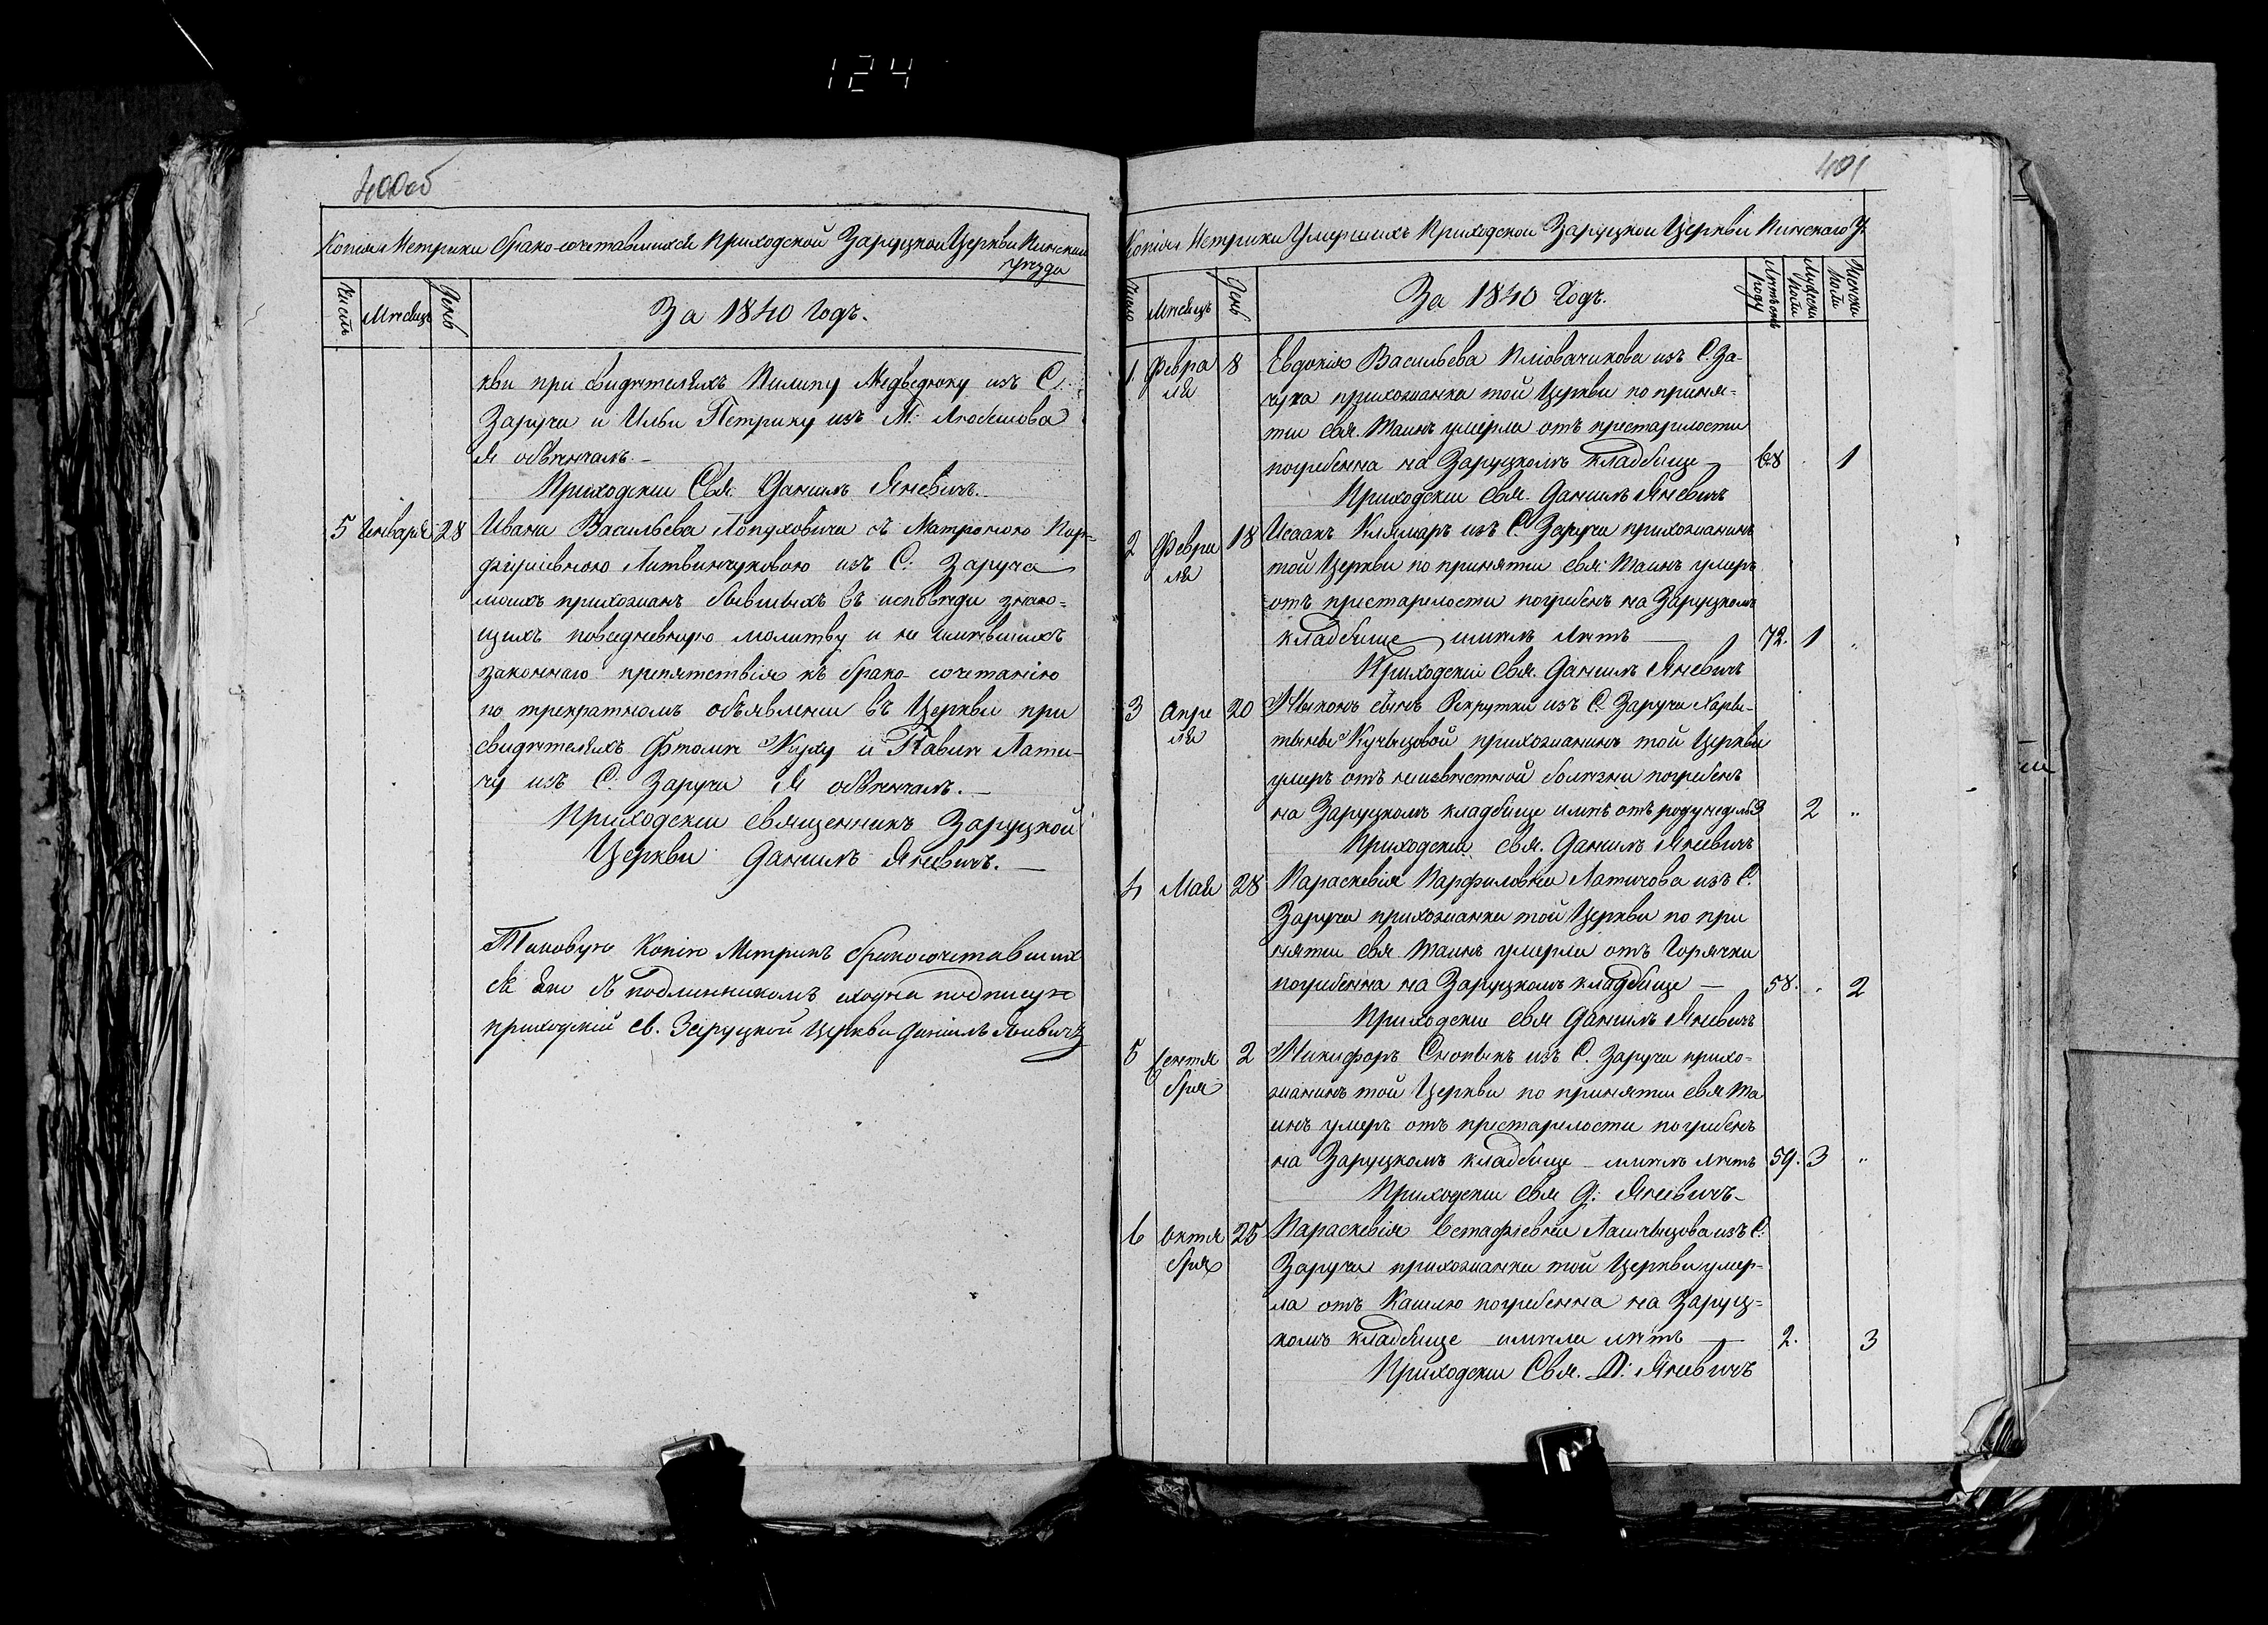 124
400об
Копія Метрики брако-сочетавшихся Приходской Заруцкой Церкви Пинскаго
уезда
Число Мѣсяцъ День
За 1840 Годъ.
кви при свидѣтеляхъ Пилипу Медведюку изъ С.
Заруча и Ильи Петрику изъ М. Любешова
Я обвѣнчалъ.
Приходскіи Свя. Даніилъ Яневичъ.
5 Января 28 Ивана Васильева Лопуховича съ Матроною Пор-
фиріевною Литвинчуковою изъ С. Заруча
моихъ прихожанъ бывшихъ въ исповѣди знаю-
щихъ повседневную молитву и не имѣвшихъ
законнаго препятствія къ брако-сочетанію
по трекратномъ объявленіи въ Церкви при
свидѣтеляхъ Фтоми Жуку и Павли Лати-
чу изъ С. Заруча Я обвѣнчалъ.
Приходскіи священникъ Заруцкой
Церкви Даніилъ Яневичъ.
Таковую Копію Метрикъ бракосочетавших
ся съ подлинникомъ сходна подписую
приходскій св. Заруцкой Церкви Даніилъ Яневичъ
401
Копія Метрики Умершихъ Приходской Заруцкой Церкви Пинскаго У.
Число Мѣсяцъ День
За 1840 Годъ.
Лѣтъ отъ роду Мужеска поли Женска поли
1. Февра 8 Евдокія Васильева из С. За-
ля руча прихожанка той Церкви по приня-
тіи свя. Таинъ умерла отъ престарѣлости
погребенна на Заруцкомъ кладбище 68 1
Приходскіи свя. Даніилъ Яневичъ
2 Февра 18 Исаакъ Клямаръ изъ С. Заруча прихожанинъ
ля той Церкви по принятіи свя. Таинъ умеръ
отъ престарелости погребенъ на Заруцкомъ
кладбище имѣлъ лѣтъ 72. 1 "
Приходскіи свя. Даніилъ Яневичъ
3 Апре 20 сынъ Рекрутки изъ С. Заруча Хари-
ля тыны Кучыцовой прихожанинъ той Церкви
умеръ отъ неизвѣстной болѣзни погребенъ
на Заруцкомъ кладбище имѣ отъ роду недель 3 2 "
Приходскіи свя. Даніилъ Яневичъ
4 Мая 28 Параскевія Парфиловна Латичова изъ С.
Заруча прихожанка той Церкви по при
нятіи свя Таинъ умерла отъ Горячки
погребенна на Заруцкомъ кладбище 58. 2
Приходскіи свя Даніилъ Яневичъ
5 Сентя 2 Никифоръ Снопыкъ изъ С. Заруча прихо-
бря жанинъ той Церкви по принятіи свя Та
инъ умеръ отъ престарелости погребенъ
на Заруцкомъ кладбище имѣлъ лѣтъ 59. 3 "
Приходскіи свя Д. Яневичъ
6 Октя 25 Параскевія Естафіевна изъ С.
бря Заруча прихожанка той Церкви умер-
ла отъ Кашлю погребенна на Заруц-
комъ кладбище имѣла лѣтъ 2. 3
Приходскіи Свя. Д. Яневичъ